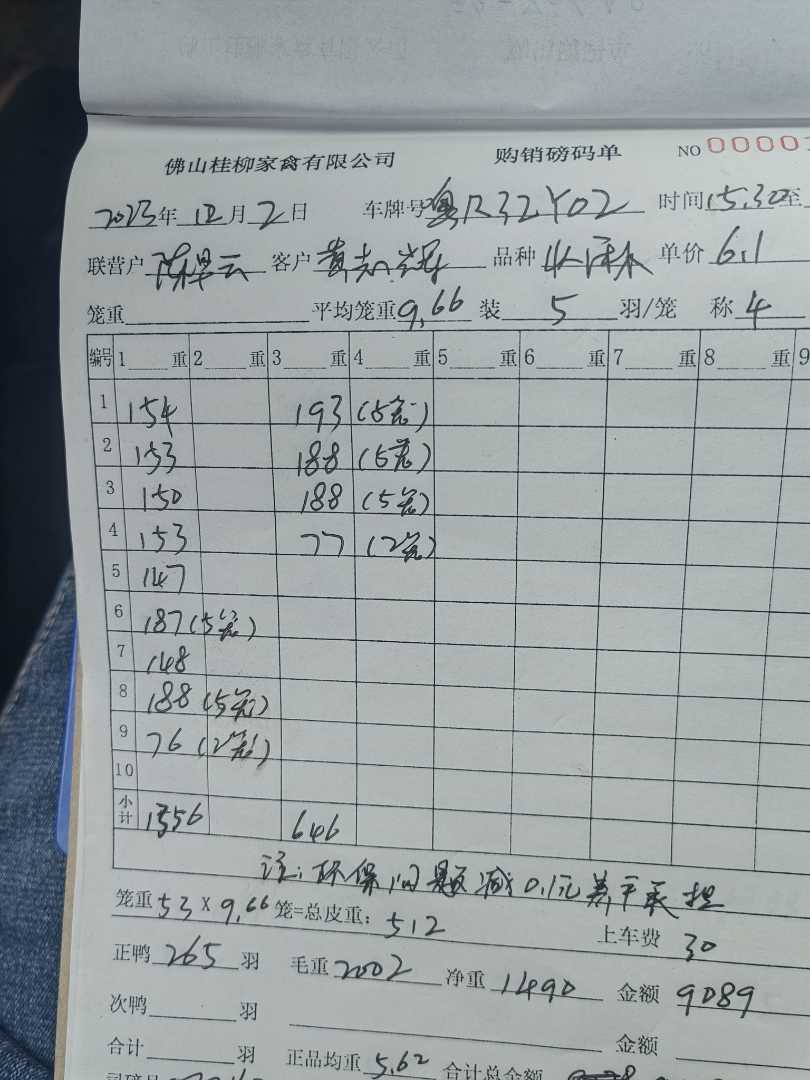 佛山桂柳家禽有限公司 购销磅码单 NO 0000
2023年12月2日 车牌号粤R32Y02 时间15.30至
联营户 客户黄志 品种 单价6.1
笼重 平均笼重9.66 装5羽/笼 称4
编号 1 重 2 重 3 重 4 重 5 重 6 重 7 重 8 重 9
1 154 193 (5笼)
2 153 188 (5笼)
3 150 188 (5笼)
4 153 77 (2笼)
5 147
6 187 (5笼)
7 148
8 188 (5笼)
9 76 (2笼)
10
小计 1356 646
注:环保问题减0.1元养户承担
笼重53×9.66笼=总皮重:512 上车费30
正鸭265羽 毛重2002 净重1490 金额9089
次鸭 羽 金额
合计 羽 正品均重5.62 合计总金额